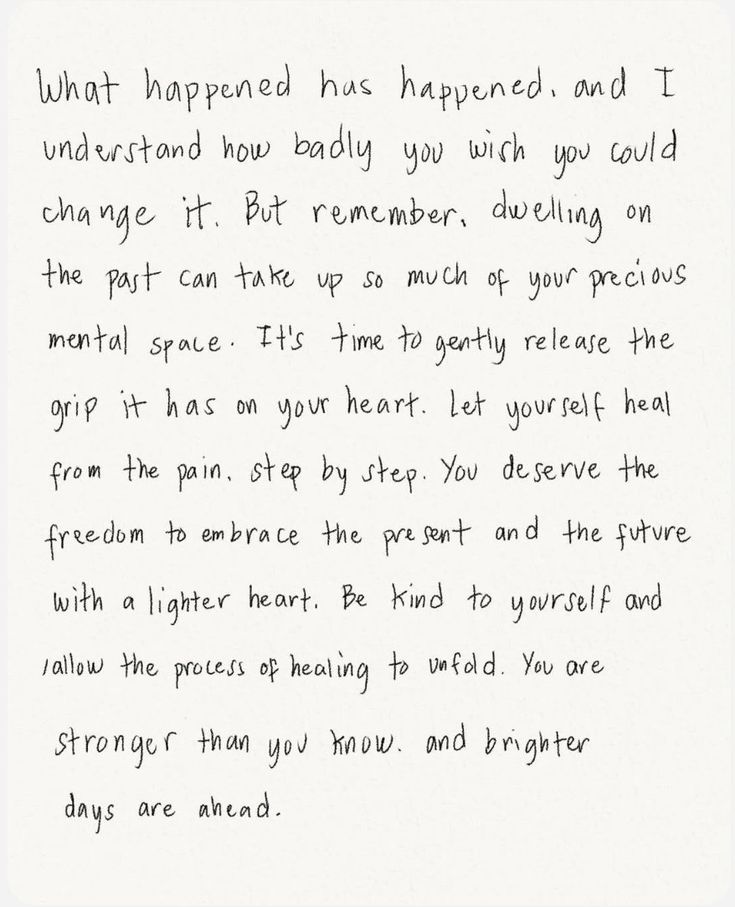 What happened has happened, and I
understand how badly you wish you could
change it. But remember, dwelling on
the past can take up so much of your precious
mental space. It's time to gently release the
grip it has on your heart. Let yourself heal
from the pain, step by step. You deserve the
freedom to embrace the present and the future
with a lighter heart. Be kind to yourself and
allow the process of healing to unfold. You are
stronger than you know. and brighter
days are ahead.